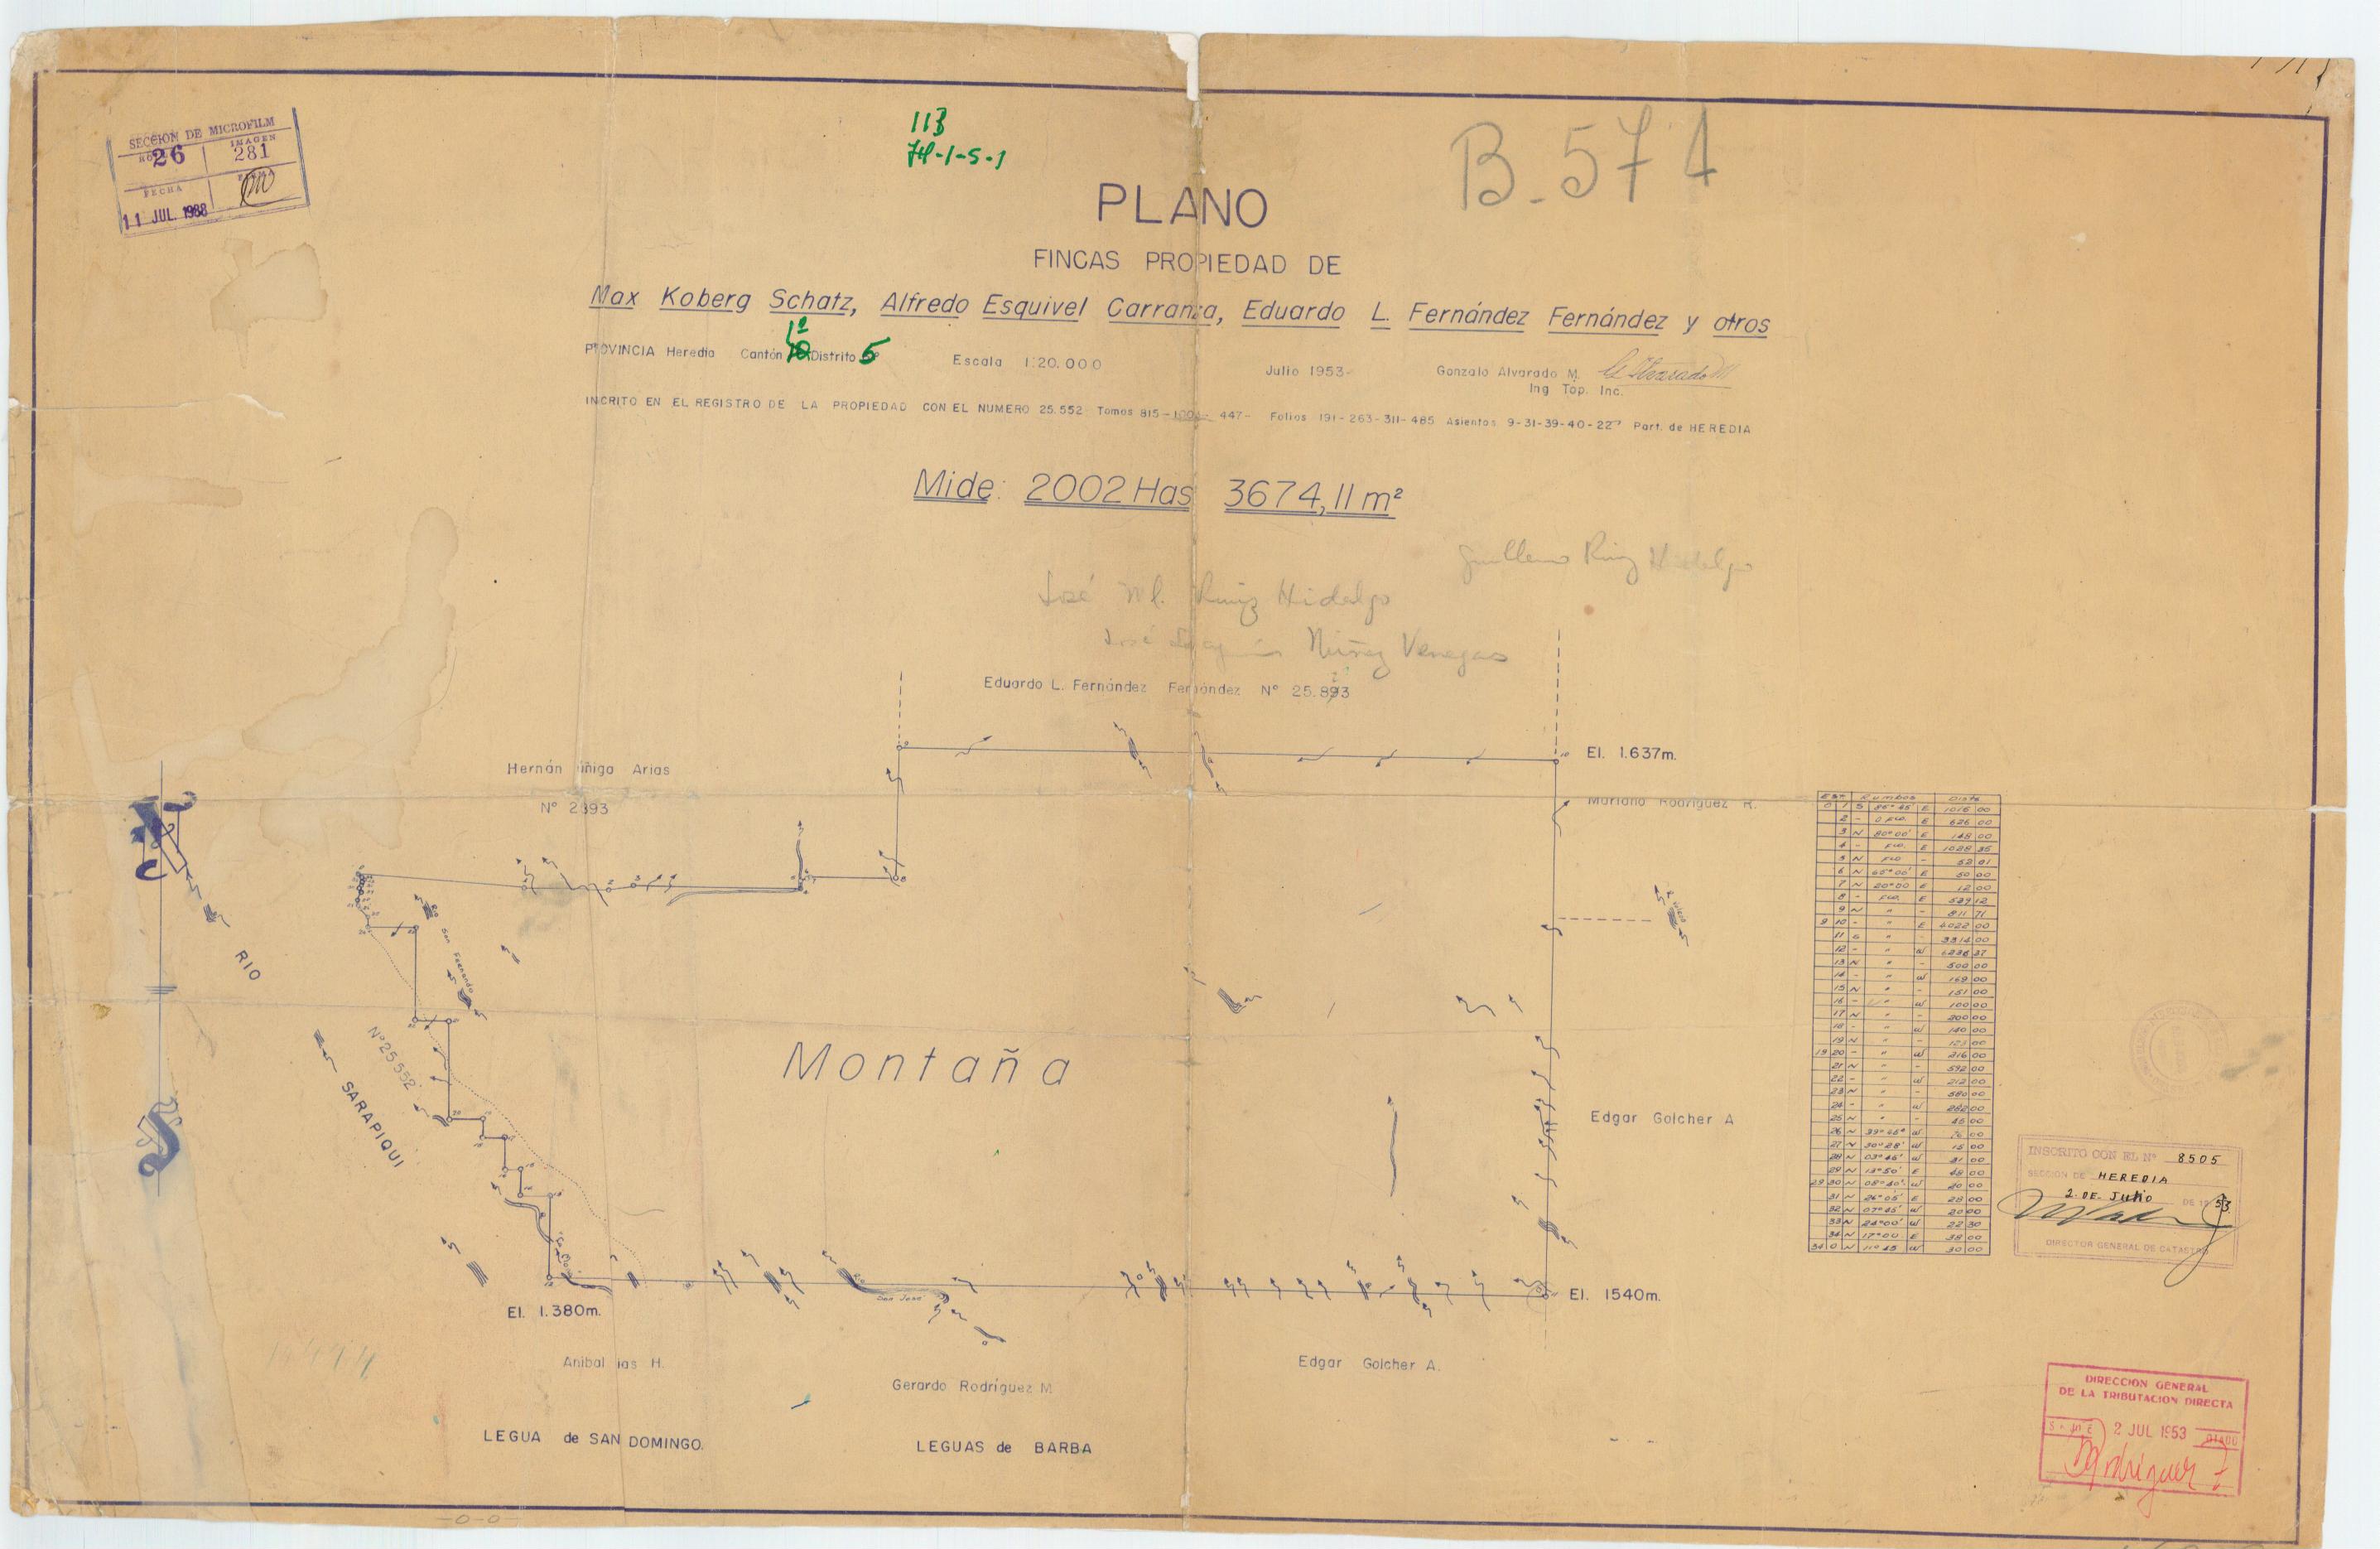 SECCION DE MICROFILM
ROLLO IMAGEN
26 281
FECHA FIRMA
11 JUL. 1988
113
B-574
PLANO
FINCAS PROPIEDAD DE
Max Koberg Schatz, Alfredo Esquivel Carranza, Eduardo L. Fernández Fernández y otros
PROVINCIA Heredia Cantón 1º Distrito 5º Escala 1:20.000 Julio 1953- Gonzalo Alvarado M.
Ing Top. Inc.
INCRITO EN EL REGISTRO DE LA PROPIEDAD CON EL NUMERO 25.552 Tomos 815- 447- Folios 191-263-311-485 Asientos 9-31-39-40-22 Part. de HEREDIA
Mide: 2002 Has 3674,11 m²
Guillermo Ruiz Hidalgo
José Ml. Ruiz Hidalgo
José Núñez Venegas
Eduardo L. Fernández Fernández Nº 25.893
El. 1.637m.
Hernán úñiga Arias
Nº 2393
Mariano Rodríguez R.
San Fernando
RIO
SARAPIQUI
Nº 25552
Montaña
Edgar Golcher A
El. 1.380m.
San José
El. 1540m.
Anibal ias H.
Gerardo Rodríguez M
Edgar Golcher A.
LEGUA de SAN DOMINGO.
LEGUAS de BARBA
Est Rumbos Dists
0 1 S 86º45' E 1016 00
2 - Fco. E 626 00
3 N 80º00' E 148 00
4 - Fco. E 1028 35
5 N Fco - 52 01
6 N 65º00' E 50 00
7 N 20º00 E 12 00
8 - Fco. E 529 12
9 N " - 811 71
9 10 - " E 4022 00
11 S " - 3314 00
12 - " W
13 N " - 500 00
14 - " W 169 00
15 N " - 151 00
16 - " W 100 00
17 N " - 200 00
18 - " W 140 00
19 N " - 123 00
19 20 - " W 216 00
21 N " - 592 00
22 - " W 212 00
23 N " - 580 00
24 - " W 282 00
25 N " - 45 00
26 N 39º45' W 76 00
27 N 30º28' W 15 00
28 N 03º45' W 31 00
29 N 13º50' E 48 00
29 30 N 08º40' W 20 00
31 N 26º05' E 28 00
32 N 07º45' W 20 00
33 N 24º00' W 22 30
34 N 17º00 E 38 00
34 0 N 11º45 W 30 00
INSCRITO CON EL Nº 8505
SECCION DE HEREDIA
2. DE. Julio DE 1953
DIRECTOR GENERAL DE CATASTRO
DIRECCION GENERAL
DE LA TRIBUTACION DIRECTA
S. JOSE 2 JUL 1953
Rodríguez